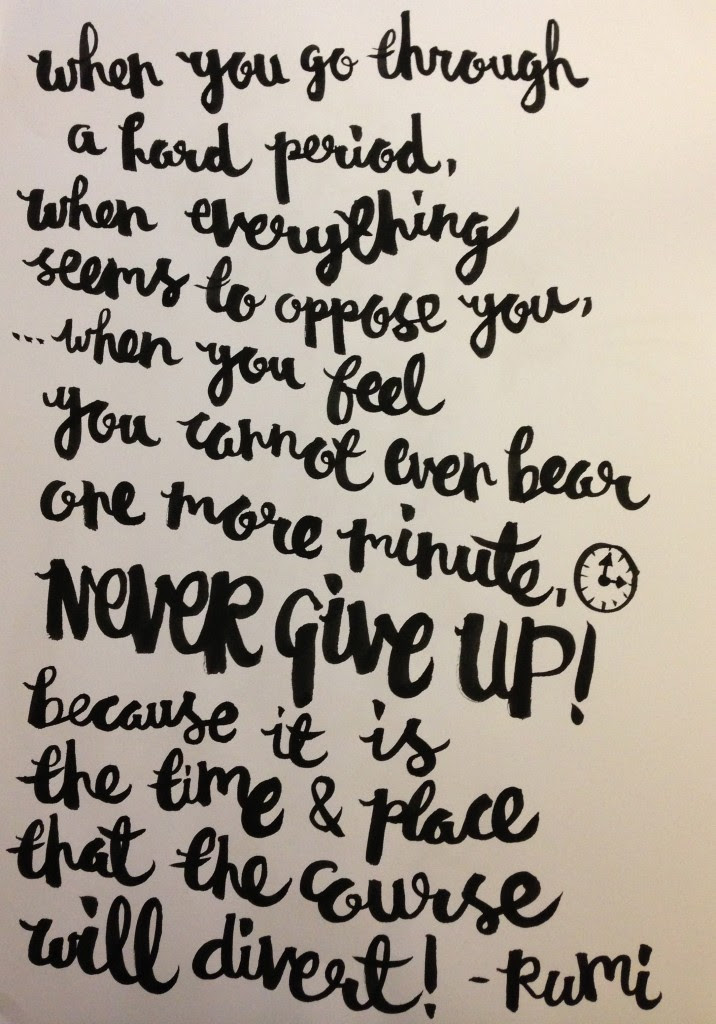 when you go through
a hard period,
when everything
seems to oppose you,
...when you feel
you cannot even bear
one more minute,
NEVER GIVE UP!
because it is
the time & place
that the course
will divert! -RUMi